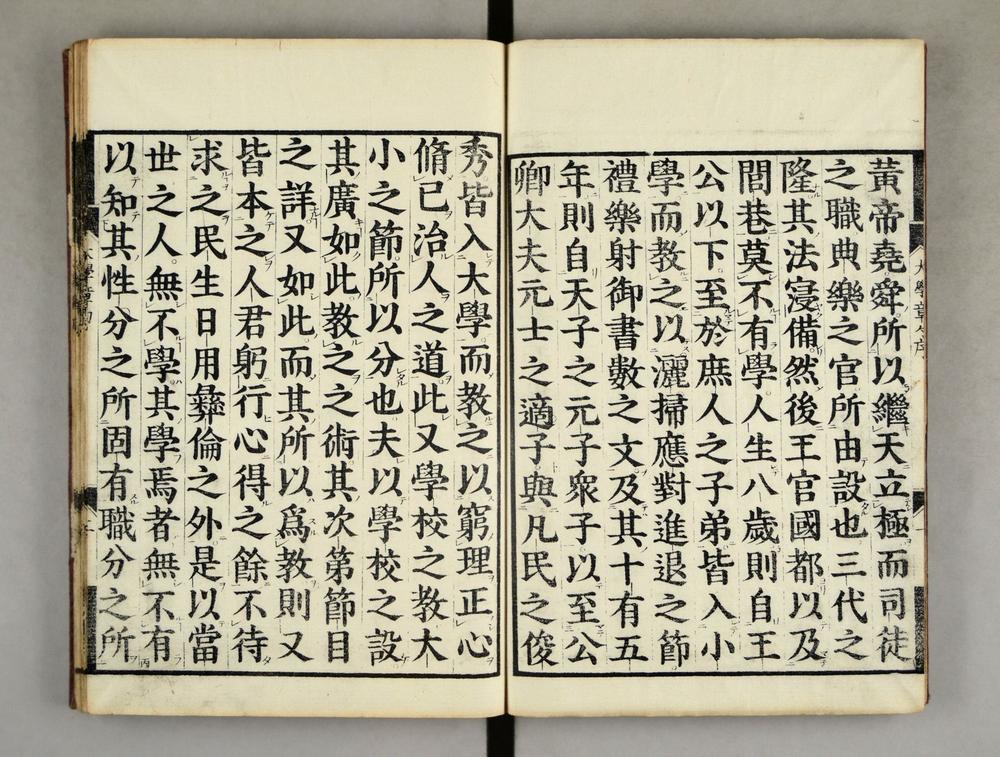 黃帝堯舜所以繼天立極而司徒
之職典樂之官所由設也三代之
隆其法寖備然後王宮國都以及
閭巷莫不有學人生八歲則自王
公以下至於庶人之子弟皆入小
學而教之以灑掃應對進退之節
禮樂射御書數之文及其十有五
年則自天子之元子衆子以至公
卿大夫元士之適子與凡民之俊
秀皆入大學而教之以窮理正心
脩已治人之道此又學校之教大
小之節所以分也夫以學校之設
其廣如此教之之術其次第節目
之詳又如此而其所以爲教則又
皆本之人君躬行心得之餘不待
求之民生日用彝倫之外是以當
世之人無不學其學焉者無不有
以知其性分之所固有職分之所